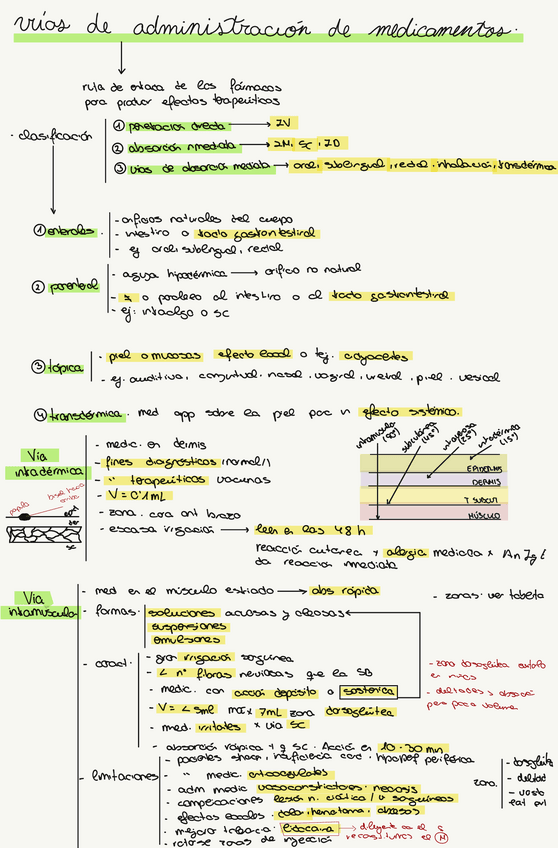 vías de administración de medicamentos.
ruta de entrada de los fármacos
para producir efectos terapeúticos
· clasificación
① penetración directa → IV
② absorción inmediata → IM, SC, ID
③ vías de absorción mediata → oral, sublingual, rectal, inhalación, transdérmica
① enterales.
- orificios naturales del cuerpo
- intestino o tracto gastrointestinal
- ej oral, sublingual, rectal
② parenteral
- aguja hipodérmica → orificio no natural
- ≠ o paralelo al intestino o al tracto gastrointestinal
- ej:
o SC
③ tópica
- piel o mucosas efecto local o tej. adyacentes
- ej. auditiva, conjuntival, nasal, vaginal, uretral, piel, vesical
④ transdérmica. med app sobre la piel para un efecto sistémico.
Vía intradérmica
- medic. en dermis
- fines diagnósticos (normal//)
- " terapeúticos vacunas
- V = 0'1mL
- zona. cara ant brazo
- escasa irrigación → leen en las 48 h
reacción cutánea y alergia mediada x An Ig E
da reacción inmediata
pápula
epid
der
SC
intramuscular (90º)
subcutánea (45º)
intravenosa (25º)
intradérmica (15º)
EPIDERMIS
DERMIS
T SUBCUT
MÚSCULO
Vía intramuscular
- med en el músculo estriado → abs rápida
- zonas: ver tableta
- formas.
soluciones acuosas y oleosas
suspensiones
emulsiones
- caract.
- gran irrigación sanguínea
- < nº fibras nerviosas que la SB
- medic. con acción depósito o sostenida
- V = < 5mL máx 7mL zona dorsoglútea
- med. irritantes x vía SC
- absorción rápida + q SC. Acción en 10-30 min
- zona dorsoglútea
en niños
- deltoides y absoción
pero poco volumen
- limitaciones
- pacientes shock, insuficiencia card. hipoperf periférica
- " medic. anticoagulados
- adm medic vasoconstrictores. necrosis
- complicaciones lesión n. ciático / v sanguíneos
- efectos locales. dolor, hematoma, absceso
- mejorar tolerancia. lidocaína → diluyente con el q
reconstituimos el Ⓜ
- rotarse zonas de inyección
zona.
- dorsoglútea
- deltoid
- vasto
lat ext